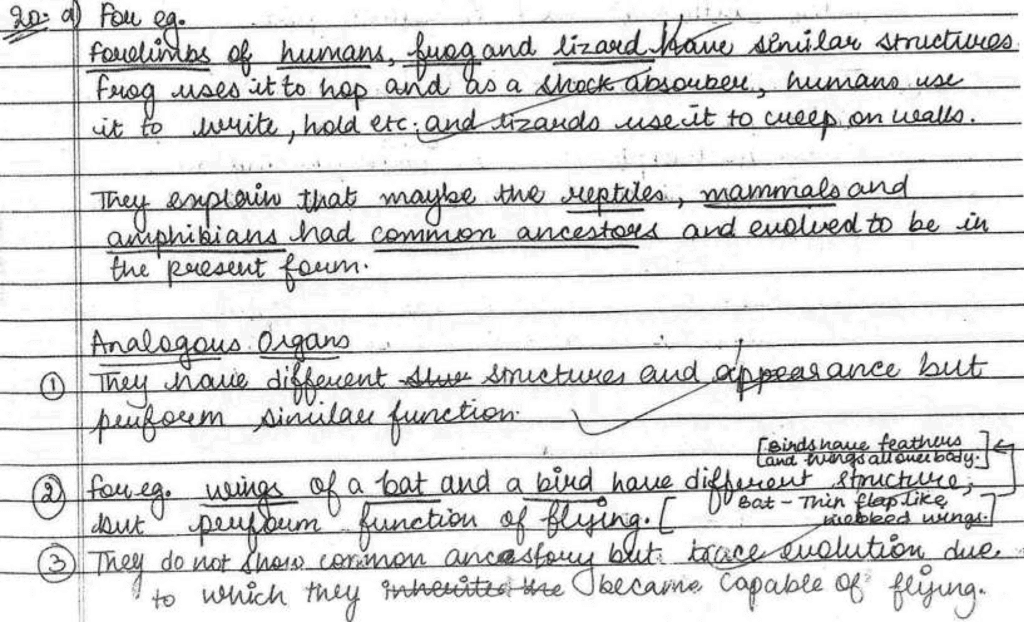 20. a) For eg.
forelimbs of humans, frog and lizard have similar structures.
Frog uses it to hop and as a shock absorber, humans use
it to write, hold etc. and lizards use it to creep on walls.
They explain that maybe the reptiles, mammals and
amphibians had common ancestors and evolved to be in
the present form.
Analogous Organs
① They have different structures and appearance but
perform similar function.
[Birds have feathers
and wings all over body.]
② For eg. wings of a bat and a bird have different structure,
but perform function of flying. [Bat - Thin flap like
webbed wings.]
③ They do not show common ancestory but trace evolution due
to which they inherited the became capable of flying.